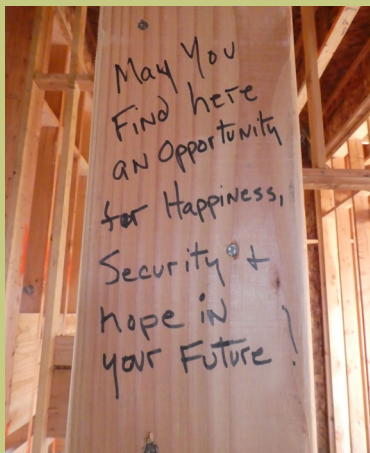 May You
Find here
an Opportunity
for Happiness,
Security +
hope in
your Future!